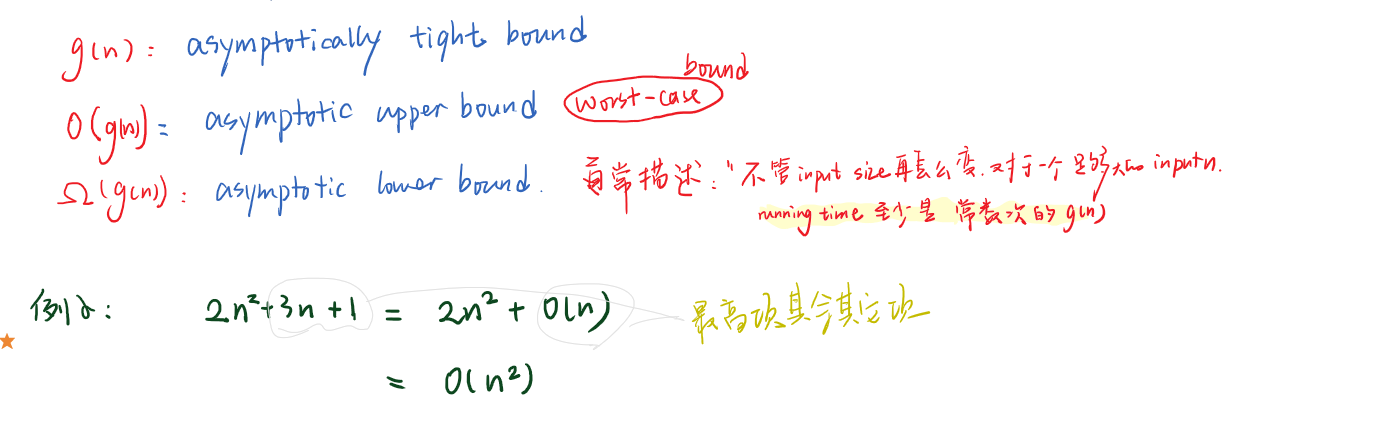 g(n): asymptotically tight bound
bound
O(g(n)) = asymptotic upper bound worst-case
Ω(g(n)): asymptotic lower bound. 常描述:"不管input size再怎么变.对于一个足够大的inputn.
running time 至少是 常数次的g(n)
例子: 2n²+3n+1 = 2n² + O(n) 最高项其余其它项
= O(n²)